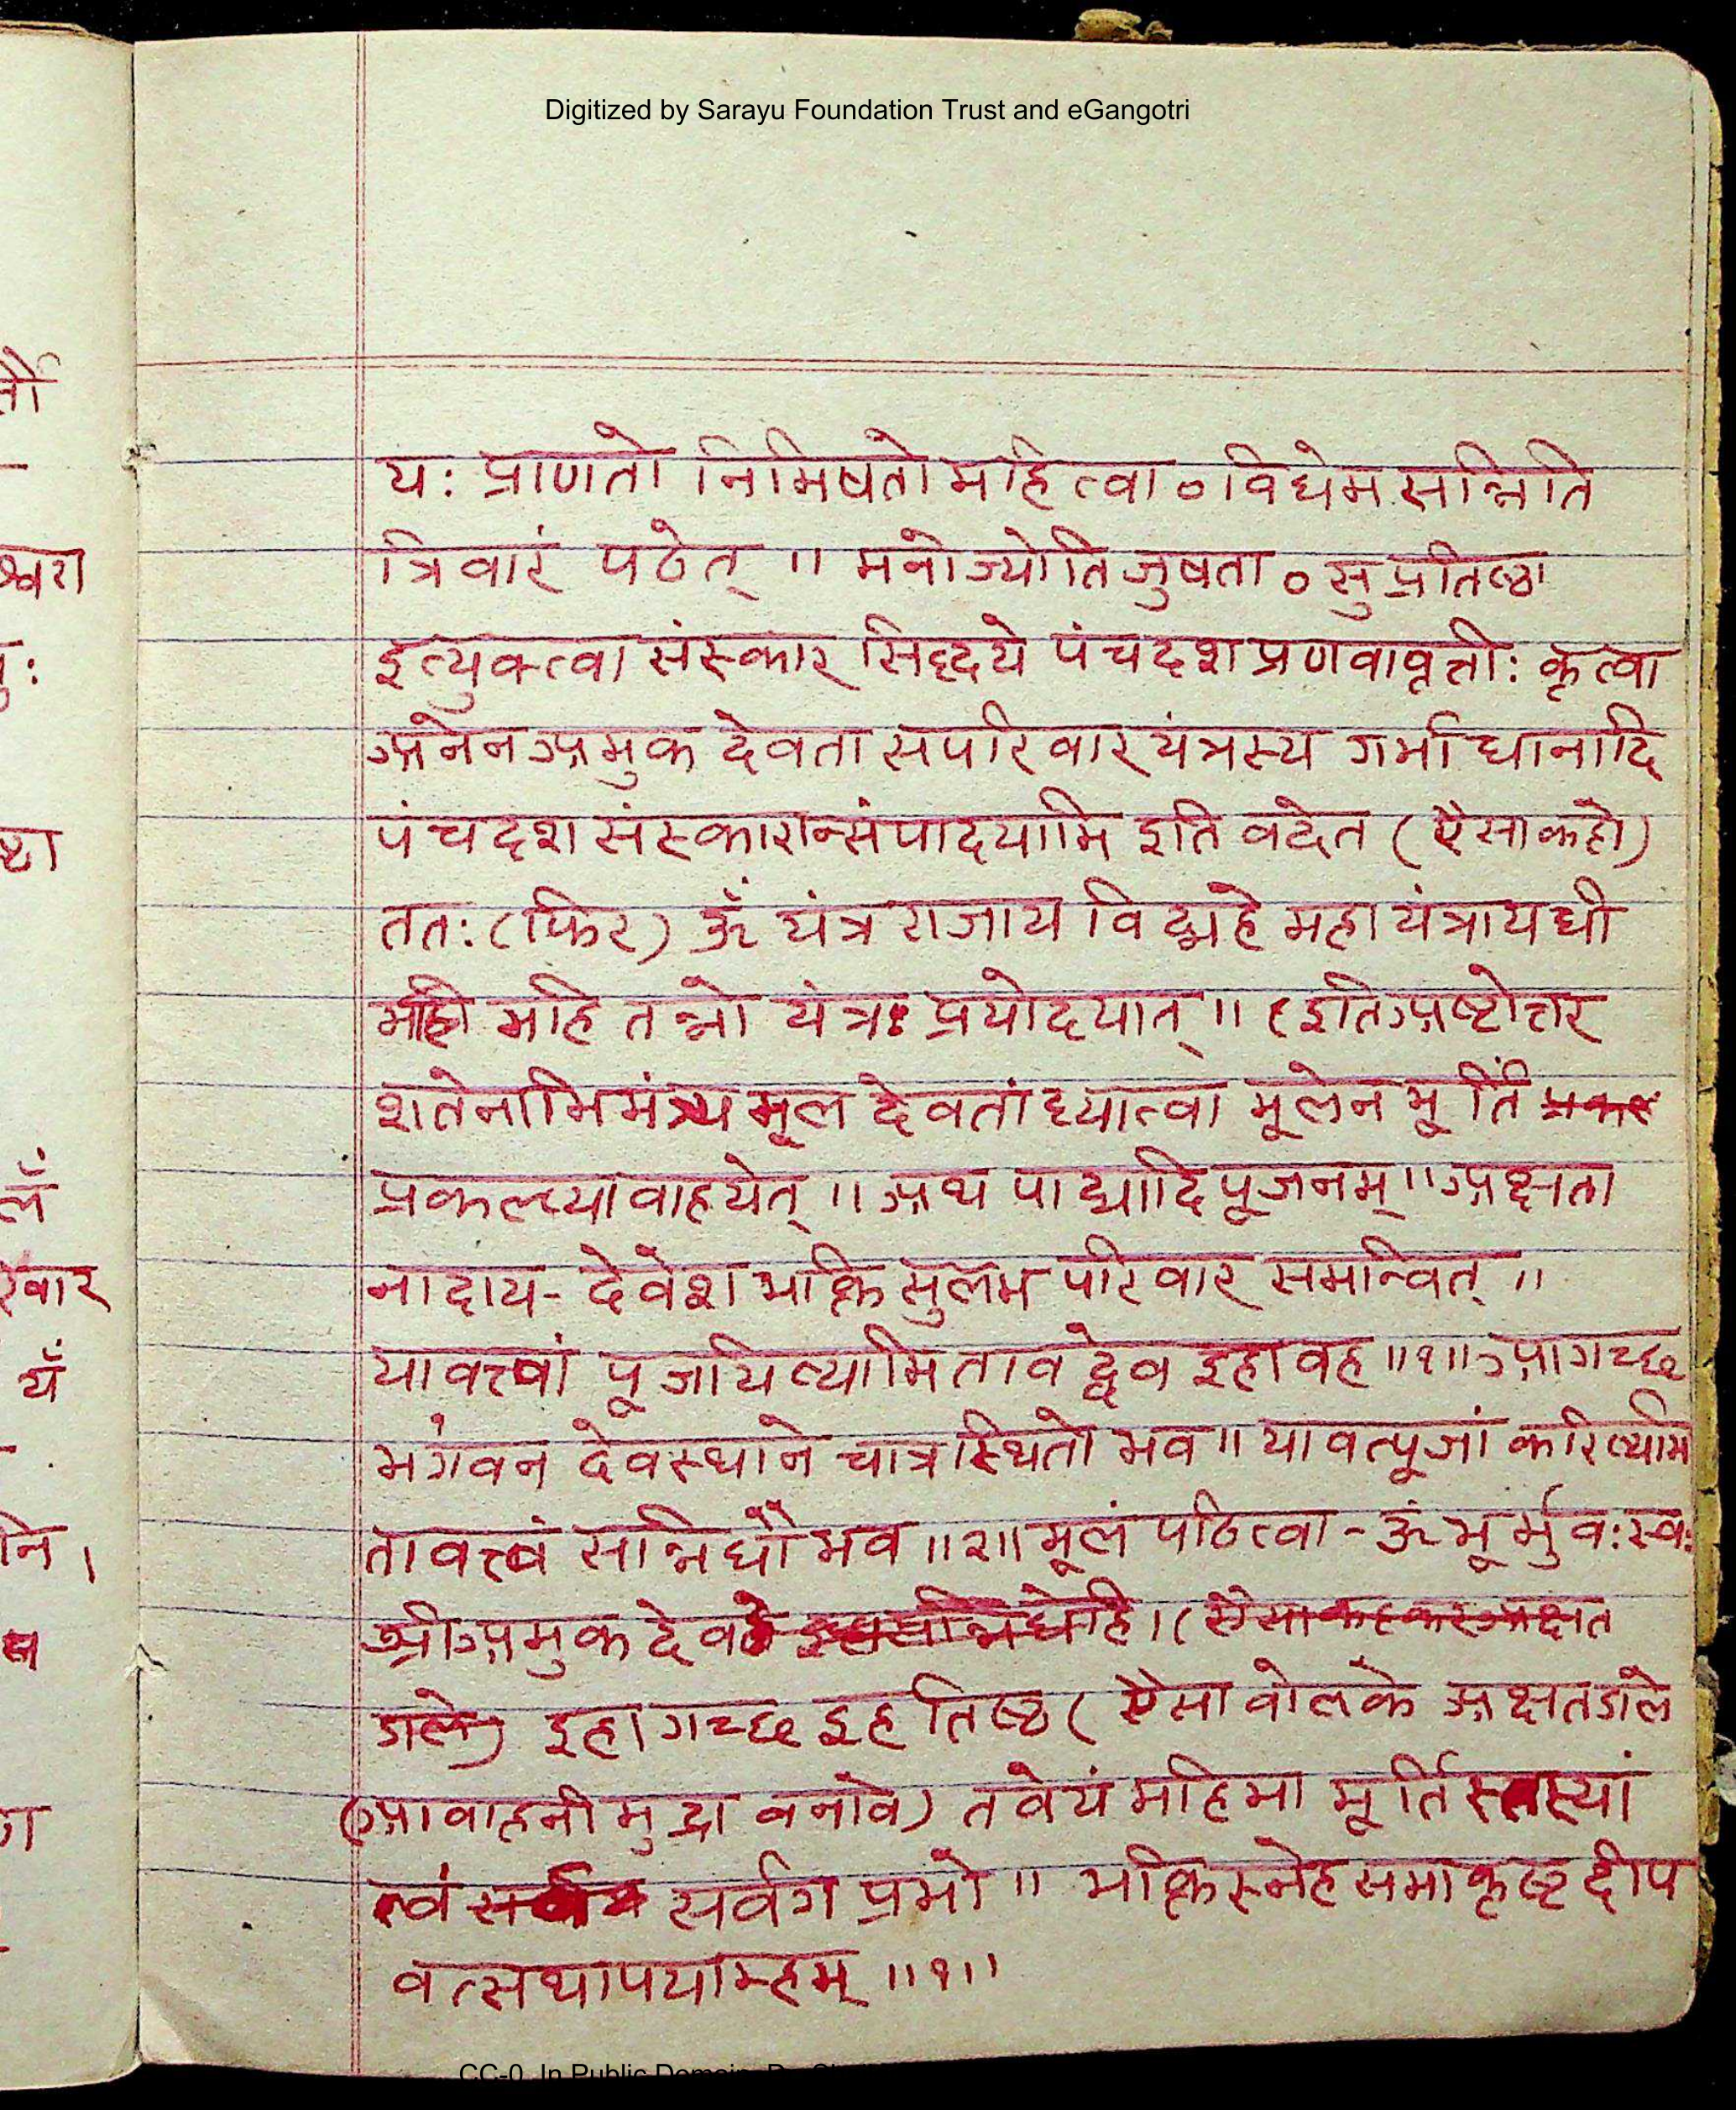 Digitized by Sarayu Foundation Trust and eGangotri
यः प्राणतो निमिषतो महित्वा ० विधेम सन्निति
त्रिवारं पठेत् ॥ मनोज्योतिजुषता ० सुप्रतिष्ठा
इत्युक्त्वा संस्कार सिद्दये पंचदश प्रणवावृत्तीः कृत्वा
अनेन अमुक देवता सपरिवार यंत्रस्य गर्भाधानादि
पंचदश संस्कारान्संपादयामि इति वदेत (ऐसा कहो)
ततः (फिर) ॐ यंत्र राजाय विद्महे महायंत्राय धी
महि तन्नो यंत्रः प्रयोदयात् ॥ (इति अष्टोत्तर
शतेनाभिमंत्र्य मूल देवतां ध्यात्वा मूलेन मूर्तिं
प्रकल्प्यावाहयेत् ॥ अथ पाद्यादि पूजनम् ॥ अक्षता
नादाय - देवेश भक्ति सुलभ परिवार समन्वित् ॥
यावत्त्वां पूजयिष्यामि तावद्देव इहावह ॥१॥ आगच्छ
भगंवन देवस्थाने चात्र स्थितो भव ॥ यावत्पूजां करिष्यामि
तावत्त्वं सन्निधौ भव ॥२॥ मूलं पठित्वा - ॐ भूर्भुवःस्वः
श्री अमुक देवते । (ऐसा कहकर अक्षत
डाले) इहागच्छ इह तिष्ठ (ऐसा वोलके अक्षत डाले
(आवाहनी मुद्रा वनावे) तवेयं महिमा मूर्तिस्तस्यां
त्वं सर्वग प्रभो ॥ भक्तिस्नेह समाकृष्ट दीप
वत्सथापयाम्हम् ॥१॥
CC-0. In Public Domain.